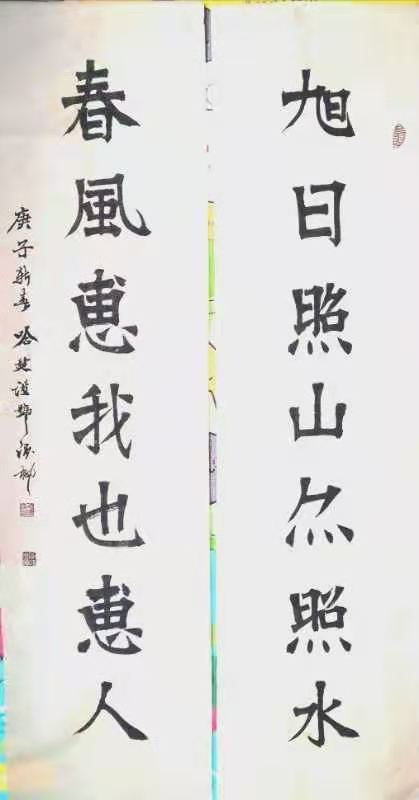 旭日照山亦照水
春風惠我也惠人
庚子新春